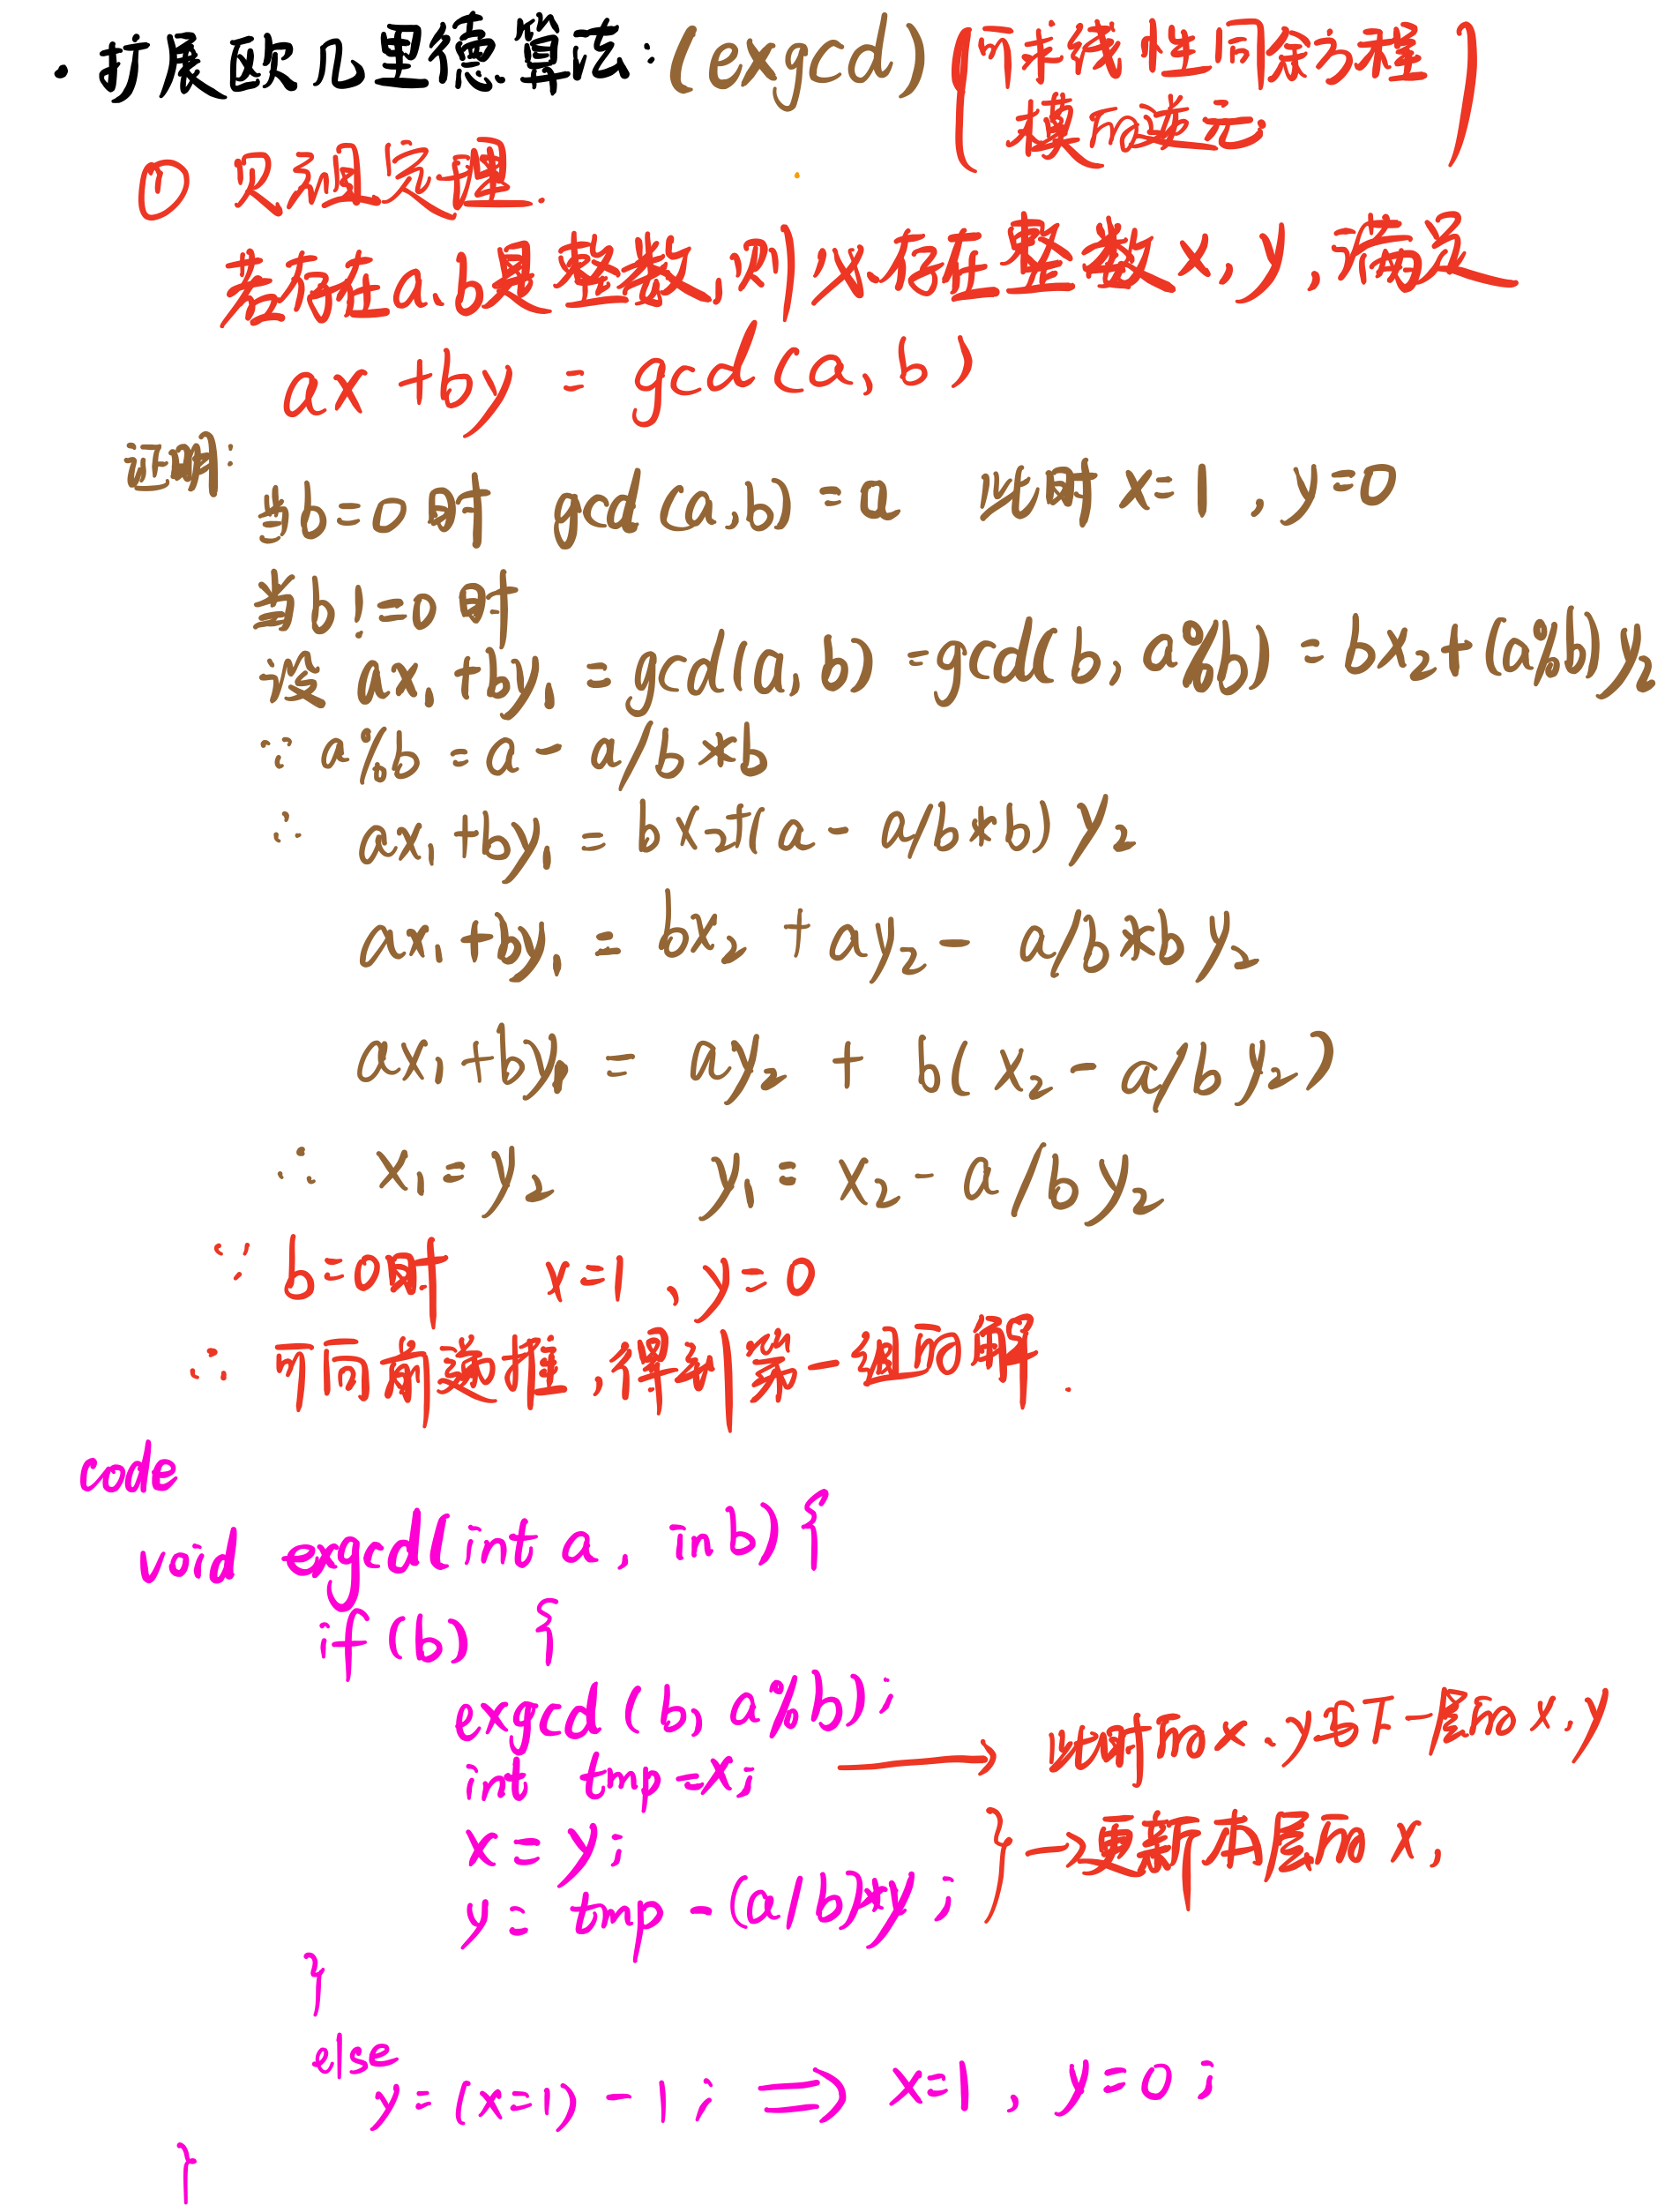 · 扩展欧几里德算法: (exgcd) (可求线性同余方程
模的逆元)
① 贝祖定理.
若存在a、b是整数,则必存在整数x,y,满足
ax+by = gcd(a,b)
证明:
当b=0时 gcd(a,b)=a 此时x=1,y=0
当b!=0时
设 ax₁+by₁=gcd(a,b)=gcd(b,a%b)=bx₂+(a%b)y₂
∵ a%b=a-a/b*b
∴ ax₁+by₁=bx₂+(a-a/b*b)y₂
ax₁+by₁=bx₂+ay₂-a/b*by₂
ax₁+by₁=ay₂+b(x₂-a/by₂)
∴ x₁=y₂ y₁=x₂-a/by₂
∵ b=0时 x=1,y=0
∴ 可向前递推,得到第一组的解.
code
void exgcd(int a, in b){
if(b) {
exgcd(b, a%b);
int tmp=x; → 此时的x、y是下一层的x,y
x=y;
} → 更新本层的x,
y=tmp-(a/b)*y;
}
else
y=(x=1)-1; ⇒ x=1, y=0;
}